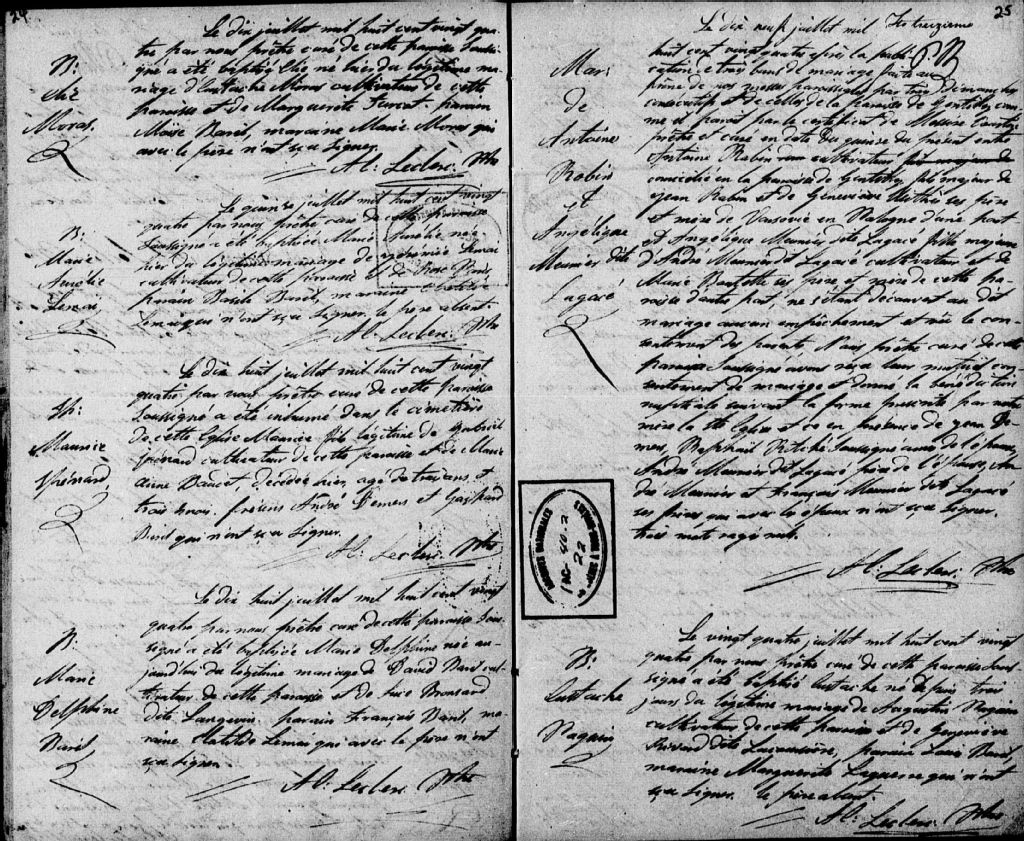 24
B:
Elie
Moras.
Le dix juillet mil huit cent vingt qua-
tre par nous prêtre curé de cette paroisse soussi-
gné a été baptisé Elie né hier du légitime ma-
riage d'Eustache Moras cultivateur de cette
paroisse et de Marguerite parrain
Moïse Baril, maraine Marie Moras qui
avec le père n'ont sçu signer.
Al. Leclerc. Ptre
B.
Marie
Aurélie
Lemai
Le quinze juillet mil huit cent vingt
quatre par nous prêtre curé de cette paroisse
soussigné a été baptisée Marie Aurélie née
hier du légitime mariage de Lemai
cultivateur de cette paroisse et de Rose
parain Baril, maraine
Lemai qui n'ont sçu signer. le père absent.
Al. Leclerc. Ptre
Sp:
Maurice
Le dix huit juillet mil huit cent vingt
quatre par nous prêtre curé de cette paroisse
soussigné a été inhumé dans le cimetière
de cette Eglise Maurice fils légitime de Gabriel
cultivateur de cette paroisse et de Marie
Anne décédé hier, agé de trois ans et
trois mois. présens André Demers et
Baril qui n'ont sçu signer.
Al. Leclerc. Ptre
B.
Marie
Delphine
Baril
Le dix huit juillet mil huit cent vingt
quatre par nous prêtre curé de cette paroisse sous-
signé a été baptisée Marie Delphine née au-
jourd'hui du légitime mariage de David Baril cul-
tivateur de cette paroisse et de Luce Bronsard
dite Langevin. parain François Baril, ma-
raine Clotilde Lemai qui avec le père n'ont
sçu signer.
Al. Leclerc. Ptre
25
Mar:
de
Antoine
Robin
&
Angélique
Meunier dite
Lagacé
Le dix neuf juillet mil
huit cent vingt quatre après la publi-
cation de trois bans de mariage faite au
prône de nos messes paroissiales par trois dimanches
consécutifs et de celles de la paroisse de Gentilly com-
me il paroit par le certificat de Messire
prêtre et curé en date du quinze du présent entre
Antoine Robin cultivateur
domicilié en la paroisse de Gentilly, fils majeur de
Jean Robin et de Geneviève ses père
et mère de en d'une part
& Angélique Meunier dite Lagacé fille majeure
d'André Meunier dit Lagacé cultivateur et de
Marie ses père et mère de cette pa-
roisse d'autre part, ne s'étant découvert au dit
mariage aucun empêchement et vu le con-
sentement des parents Nous prêtre curé de cette
paroisse soussigné avons reçu leur mutuel con-
sentement de mariage et donné la bénédiction
nuptiale suivant la forme prescrite par notre
mère la Ste Eglise et ce en présence de Jean De-
mers, Raphael soussigné amis de l'époux,
André Meunier dit Lagacé père de l'épouse, An-
dré Meunier et François Meunier dits Lagacé
ses frères qui avec les époux n'ont sçu signer.
trois mots rayés nuls.
Al. Leclerc. Ptre
B:
Eustache
Le vingt quatre juillet mil huit cent vingt
quatre par nous prêtre curé de cette paroisse sous-
signé a été baptisé Eustache né depuis trois
jours du légitime mariage de Augustin
cultivateur de cette paroisse et de Geneviève
Rivard dite parain Louis Baril,
maraine Marguerite qui n'ont
sçu signer. le père absent.
Al. Leclerc. Ptre